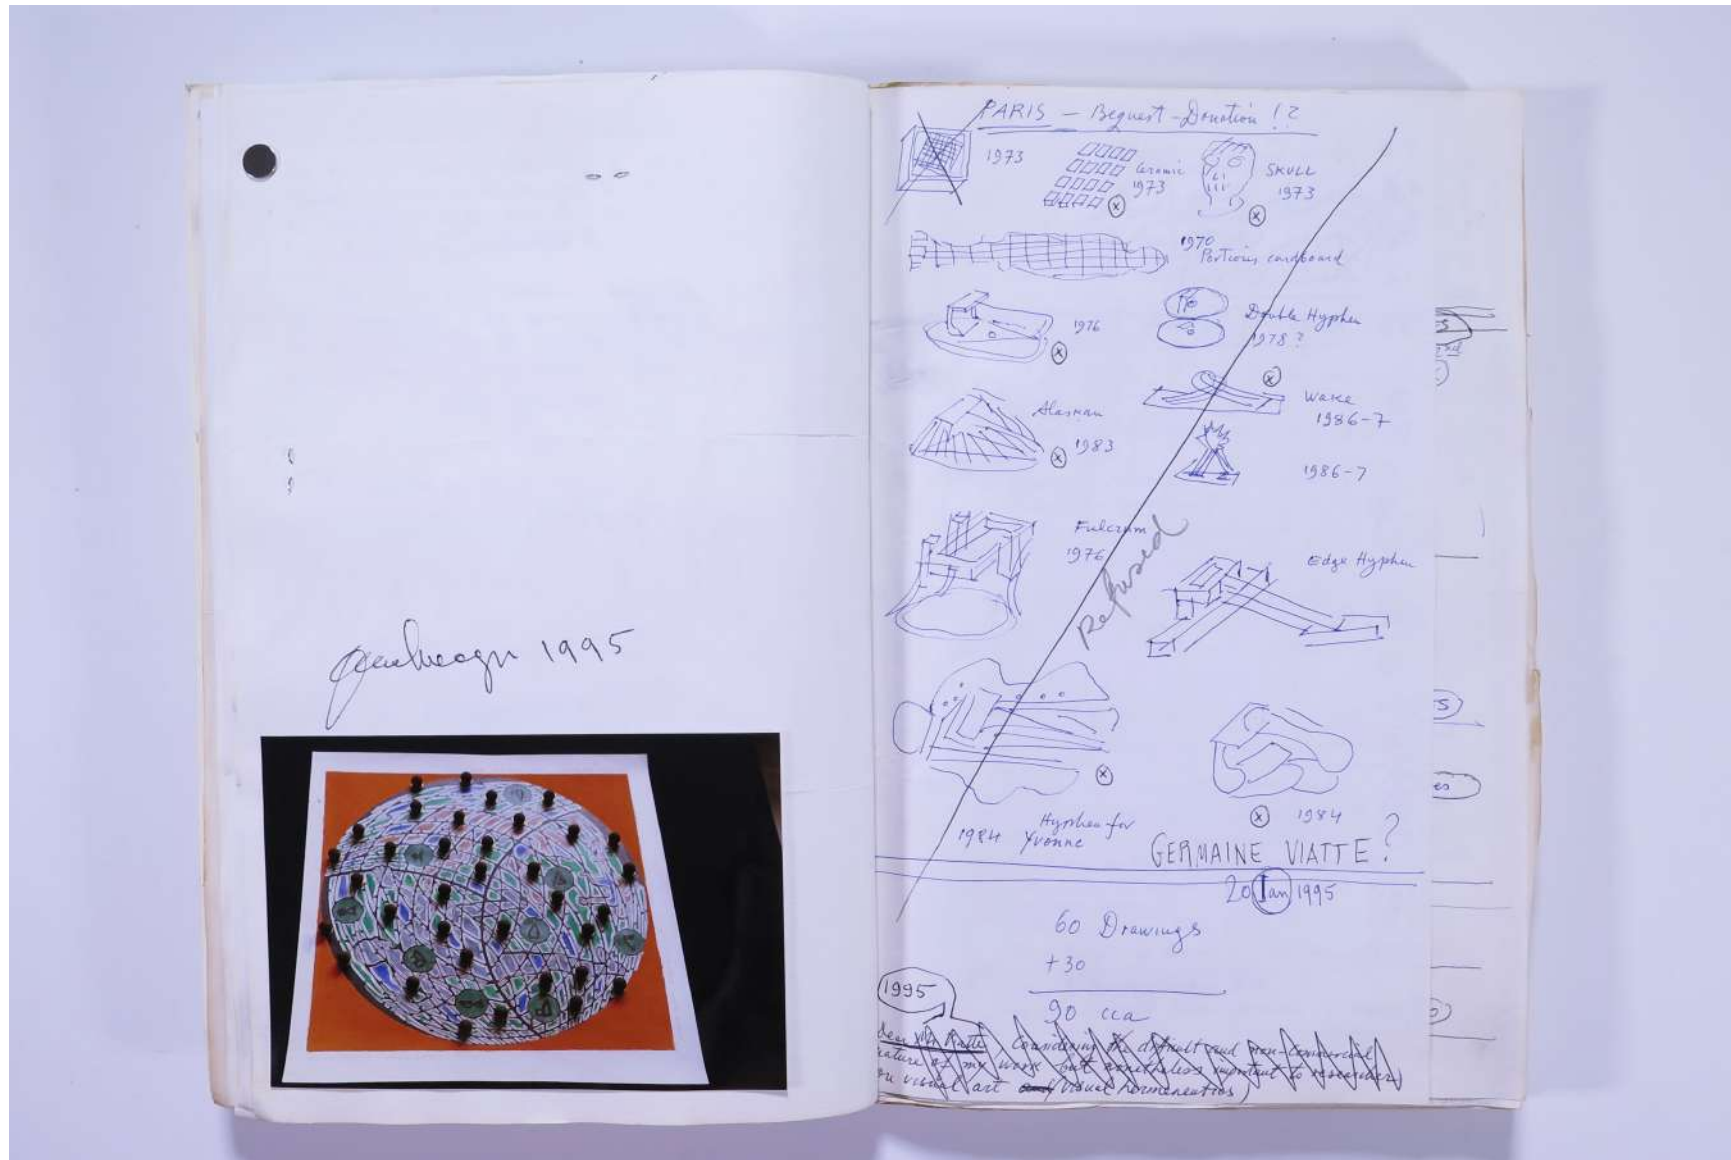 1995
PARIS — Bequest-Donation !?
1973
Ceramic
1973
SKULL
1973
1970
Portions cardboard
1976
Double Hyphen
1978 ?
Alaskan
1983
Wake
1986-7
1986-7
Fulcrum
1976
Refused
Edge Hyphen
1984 Hyphen for
Yvonne
1984
GERMAINE VIATTE ?
20 Jan 1995
60 Drawings
+30
90 cca
1995
Dear Mr Viatte Considering the difficult and non-commercial
nature of my work but nonetheless important to researches
on visual art and (visual hermeneutics)